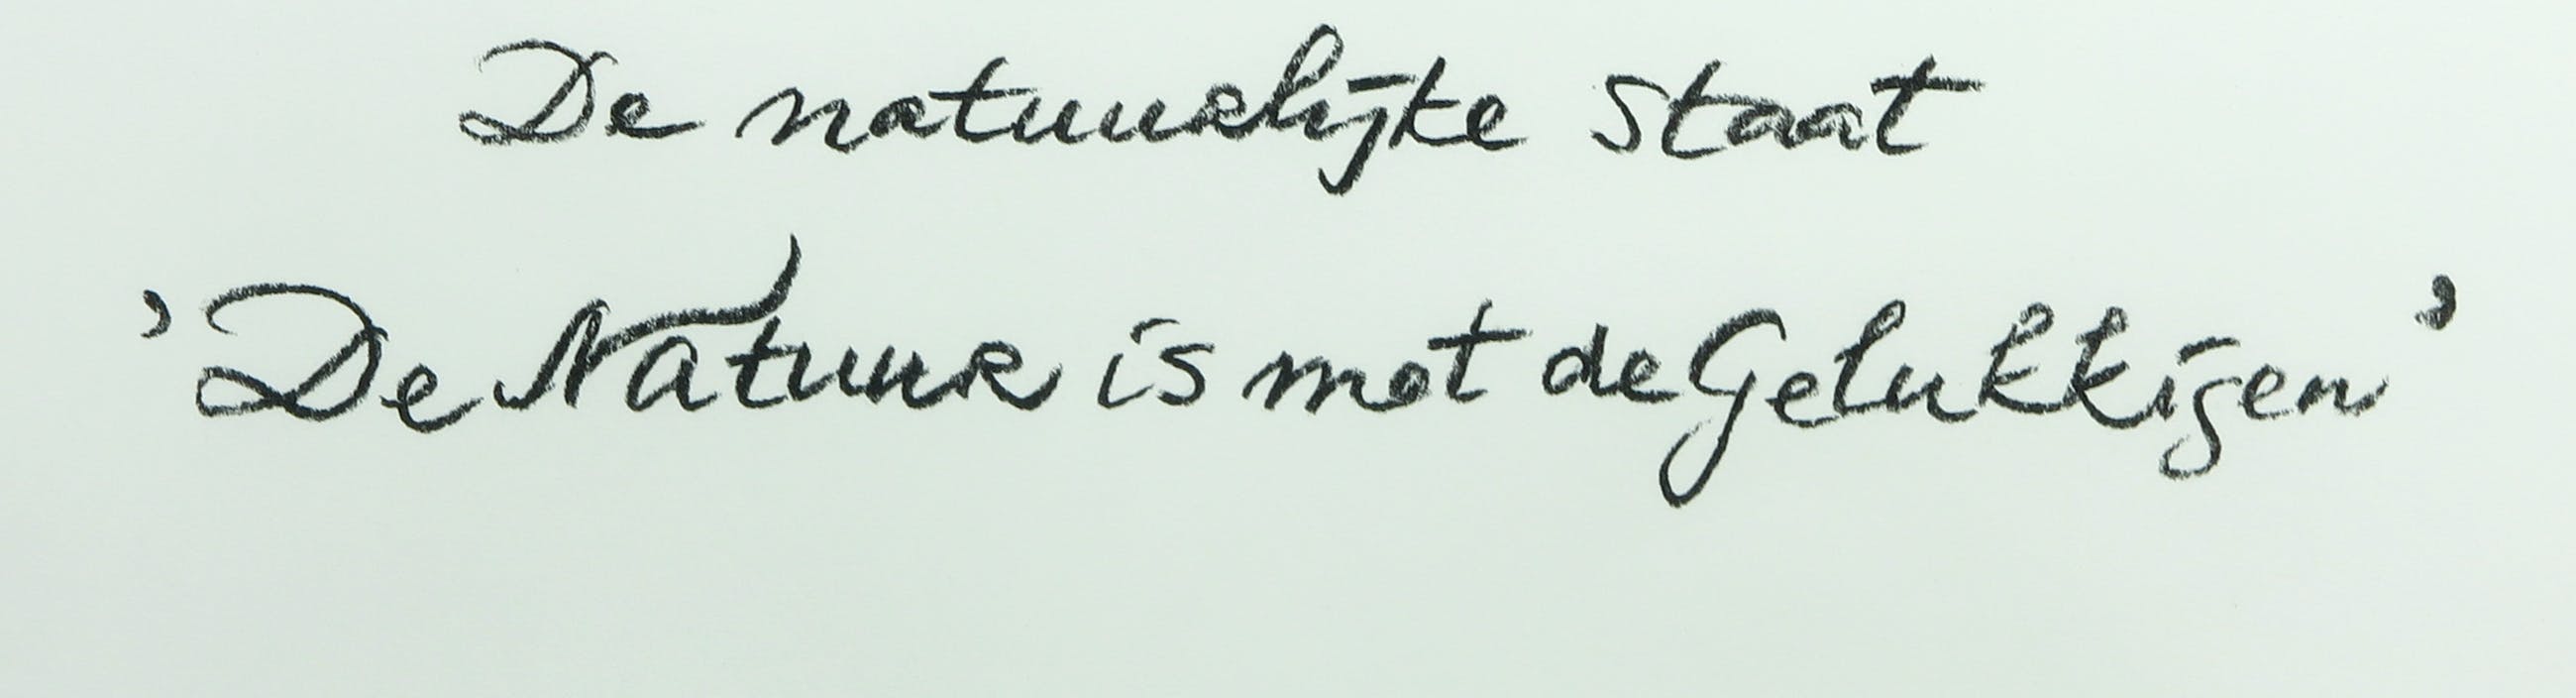 De natuurlijke staat
’De Natuur is met de Gelukkigen’